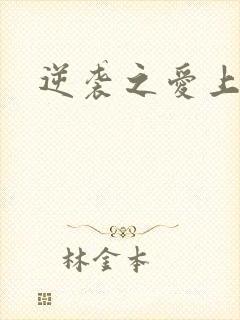 逆袭之愛上
林金本